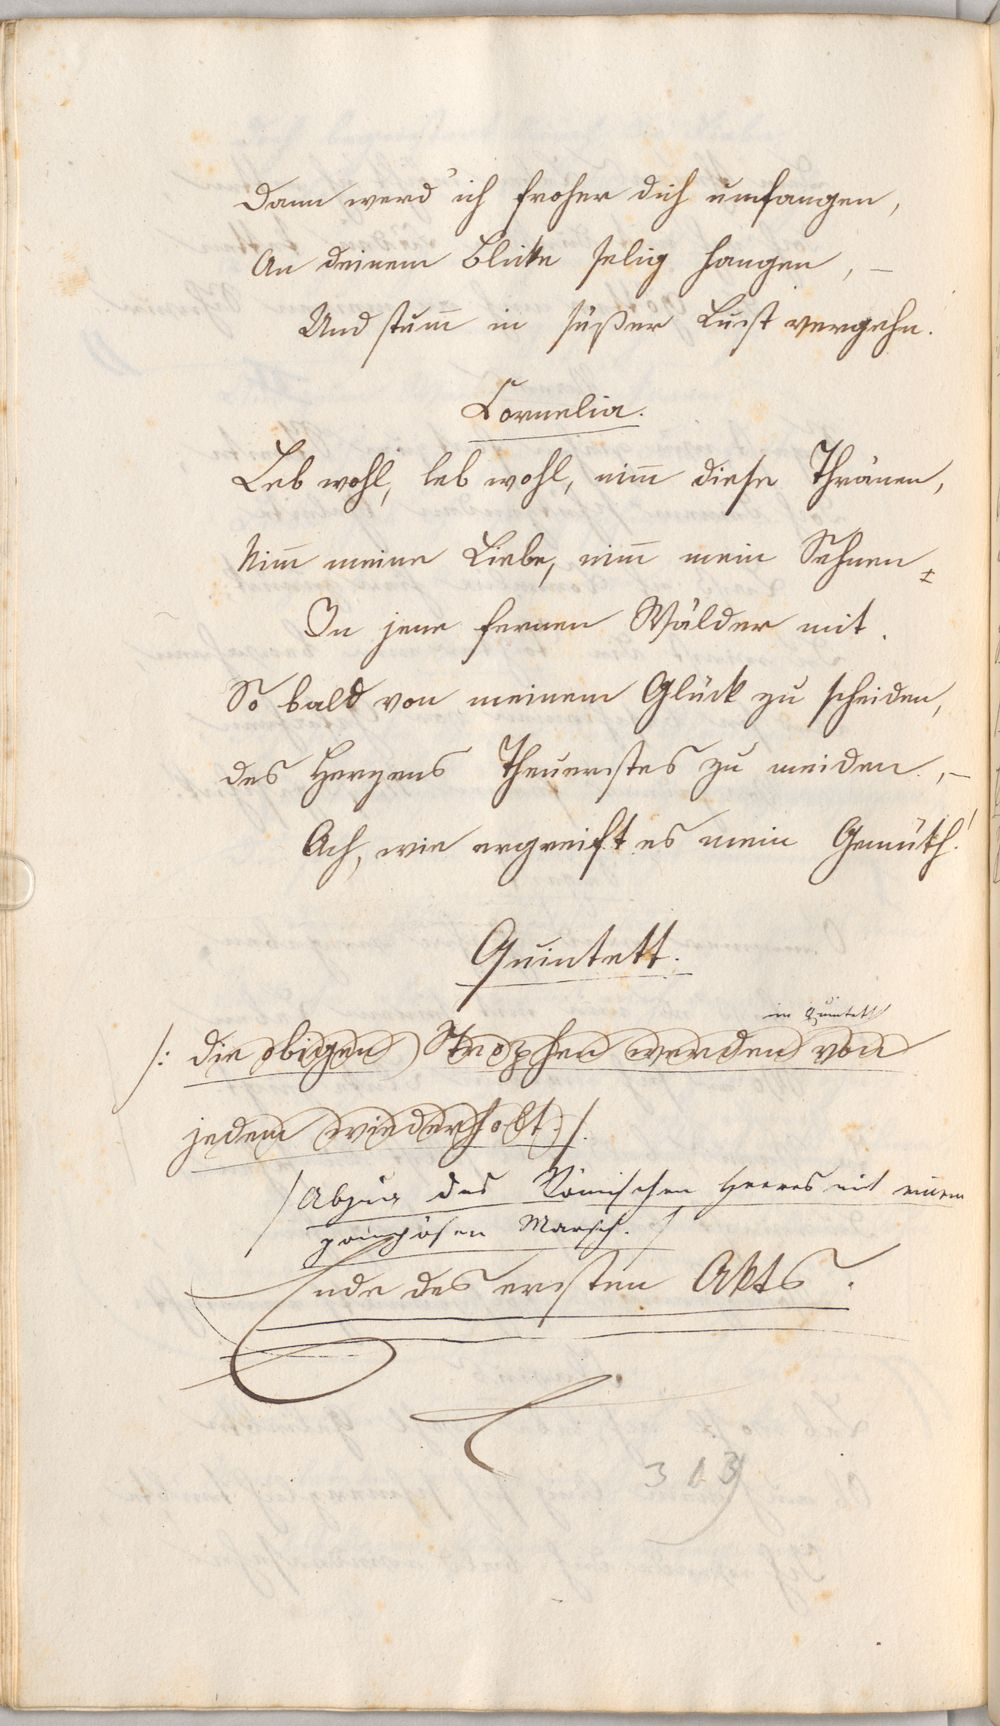 Dann werd' ich froher dich umfangen,
An deinem Blicke selig hangen, –
Und stum̅ in süßer Lust vergehn.
Cornelia.
Leb wohl, leb wohl, nim̅ diese Thränen,
Nim̅ meine Liebe, nim̅ mein Sehnen
In jene fernen Wälder mit.
So bald von meinem Glück zu scheiden,
des Herzens Theuerstes zu meiden, –
Ach, wie ergreift es mein Gemüth!
Quintett.
im Quintett
/: die obigen Strophen werden von
jedem wiederholt. :/.
/ Abzug des Römischen Heeres mit einem
pompösen Marsch. /
Ende des ersten Akts.
313